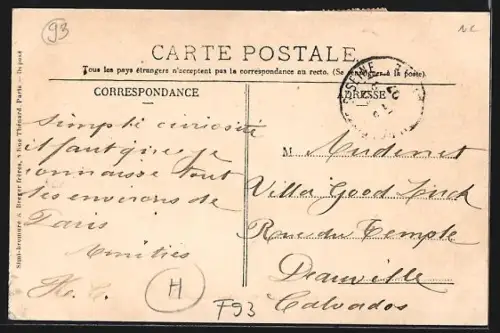 93
N.C
CARTE POSTALE
Tous les pays étrangers n'acceptent pas la correspondance au recto. (Se renseigner à la poste).
CORRESPONDANCE
ADRESSE
Simili-bromure A. Breger frères, 9 Rue Thénard, Paris - Déposé
SEINE
Simple curiosité
il faut que je
connaisse tout
les environs de
Paris
Amitiés
H
F93
M Audenet
Villa Good Luck
Rue du Temple
Deauville
Calvados